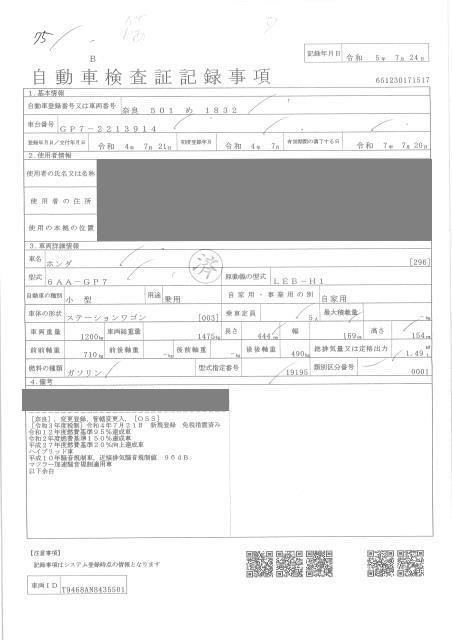 75/
B
記録年月日 令和 5年 7月 24日
自動車検査証記録事項
651230171517
1.基本情報
自動車登録番号又は車両番号 奈良 501 め 1832
車台番号 GP7-2213914
登録年月日/交付年月日 令和 4年 7月 21日 初度登録年月 令和 4年 7月 有効期間の満了する日 令和 7年 7月 20日
2.使用者情報
使用者の氏名又は名称
使用者の住所
使用の本拠の位置
3.車両詳細情報
車名 ホンダ [296]
済
型式 6AA-GP7 原動機の型式 LEB-H1
自動車の種別 小型 用途 乗用 自家用・事業用の別 自家用
車体の形状 ステーションワゴン [003] 乗車定員 5人 最大積載量 -kg
車両重量 1200kg 車両総重量 1475kg 長さ 444cm 幅 169cm 高さ 154cm
前前軸重 710kg 前後軸重 -kg 後前軸重 -kg 後後軸重 490kg 総排気量又は定格出力 1.49L
燃料の種類 ガソリン 型式指定番号 19195 類別区分番号 0001
4.備考
[奈良],変更登録,管轄変更入,[OSS]
[令和3年度税制]令和4年7月21日 新規登録 免税措置済み
令和12年度燃費基準95%達成車
令和2年度燃費基準150%達成車
平成27年度燃費基準20%向上達成車
ハイブリッド車
平成10年騒音規制車、近接排気騒音規制値 96dB
マフラー加速騒音規制適用車
以下余白
【注意事項】
記録事項はシステム登録時点の情報となります
車両ID T9468AN8435501